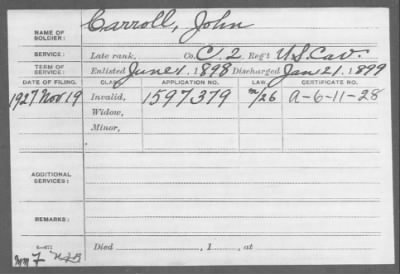 NAME OF SOLDIER: Carroll, John
SERVICE: Late rank, Co. C. 2, Reg't U.S. Cav.
TERM OF SERVICE: Enlisted June 1, 1898 Discharged Jan 21, 1899
DATE OF FILING. CLASS. APPLICATION NO. LAW. CERTIFICATE NO.
1927 Nov 19 Invalid, 1597379 m/26 A-6-11-28
Widow,
Minor,
ADDITIONAL SERVICES:
REMARKS:
Died , 1 , at